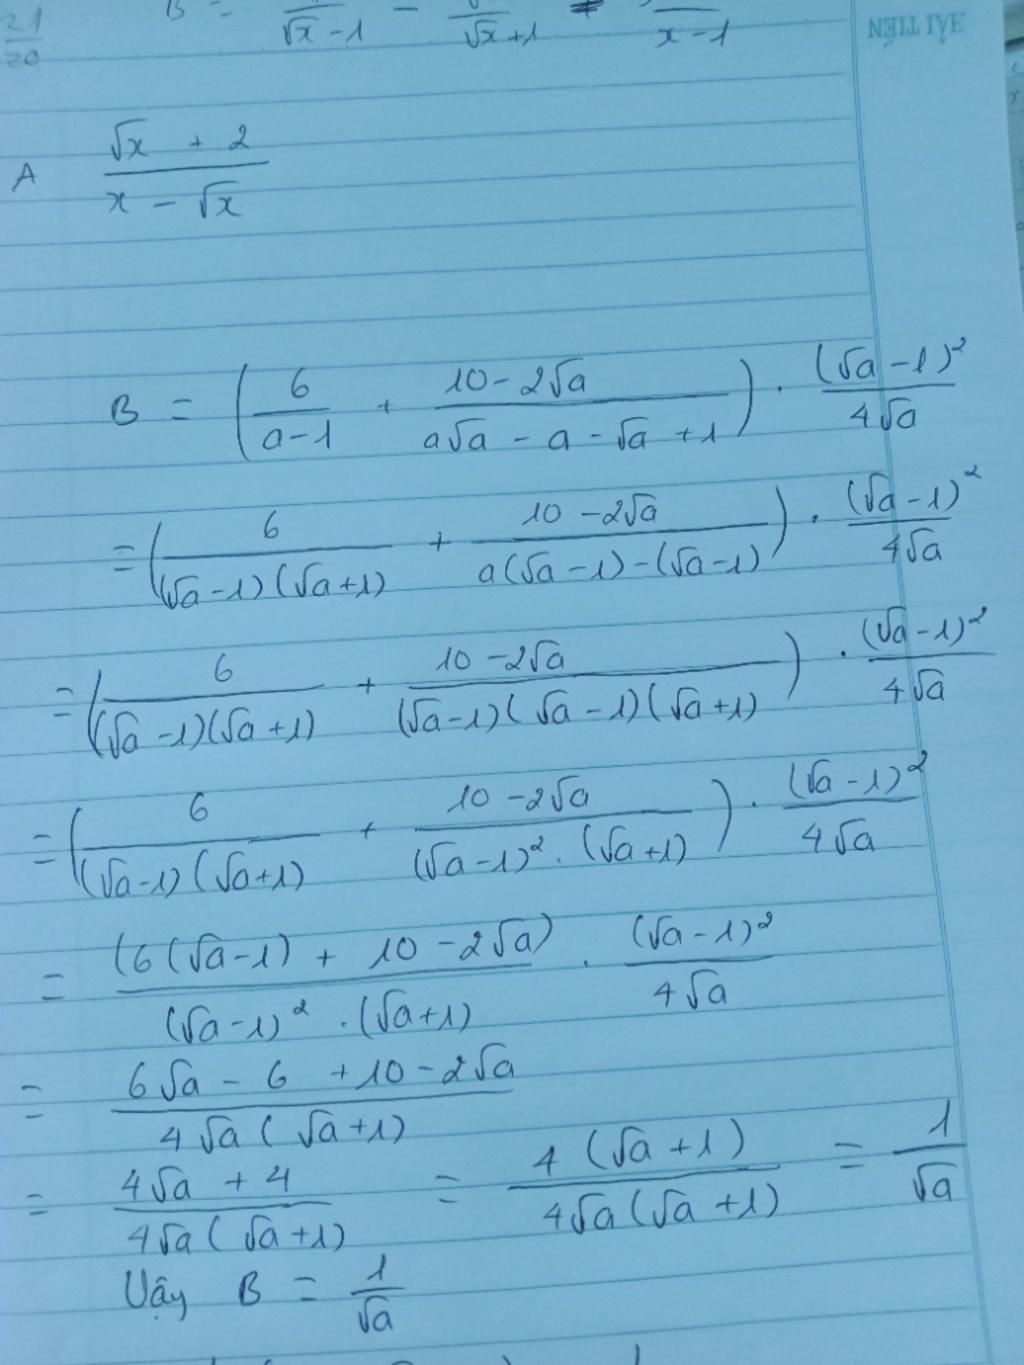 21/20 B = /(√x - 1) - /(√x + 1) /(x - 1)
HẢI TIẾN
A (√x + 2)/(x - √x)
B = (6/(a-1) + (10-2√a)/(a√a - a - √a + 1)) . (√a - 1)²/(4√a)
= (6/((√a-1)(√a+1)) + (10-2√a)/(a(√a-1)-(√a-1))) . (√a-1)²/(4√a)
= (6/((√a-1)(√a+1)) + (10-2√a)/((√a-1)(√a-1)(√a+1))) . (√a-1)²/(4√a)
= (6/((√a-1)(√a+1)) + (10-2√a)/((√a-1)² . (√a+1))) . (√a-1)²/(4√a)
= (6(√a-1) + 10 - 2√a)/((√a-1)² . (√a+1)) . (√a-1)²/(4√a)
= (6√a - 6 + 10 - 2√a)/(4√a(√a+1))
= (4√a + 4)/(4√a(√a+1)) = 4(√a+1)/(4√a(√a+1)) = 1/√a
Vậy B = 1/√a